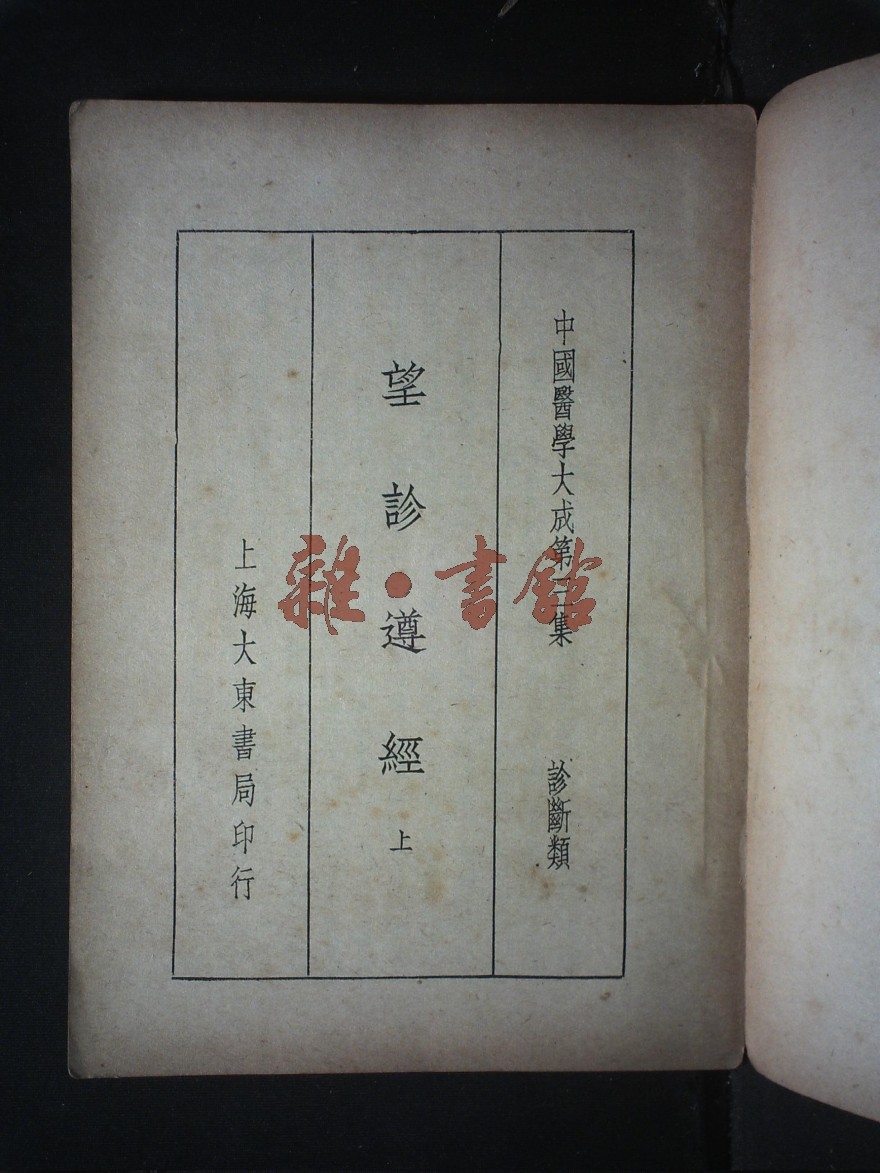 中國醫學大成第三集　診斷類
望診遵經 上
上海大東書局印行
雜·書館